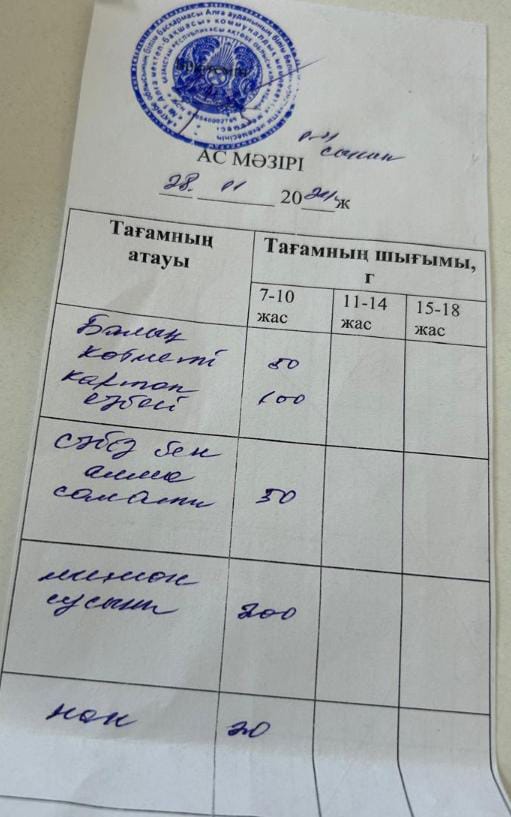 0-4 сынып
АС МӘЗІРІ
28. 01 2024 ж
Тағамның атауы
Тағамның шығымы, г
7-10 жас
11-14 жас
15-18 жас
Балық
котлеті 50
картоп
езбесі 100
сәбіз бен
алма
салаты 50
лимон
сусыны 200
нан 20